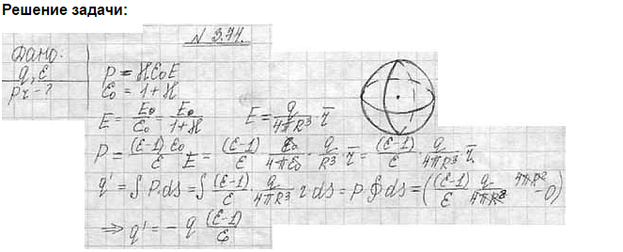 Решение задачи:
N 3.74.
Дано:
q, ε
Pr - ?
P = ϰε₀E
ε₀ = 1 + ϰ
E = E₀/ε₀ = E₀/(1+ϰ)   E = q/(4πR³) r̄
P = (ε-1)ε₀/ε E = (ε-1)/ε · ε₀/(4πε₀) · q/R³ r̄ = (ε-1)/ε · q/(4πR³) r̄
q' = ∫ P ds = ∫ (ε-1)/ε · q/(4πR³) r ds = P ∮ ds = ((ε-1)/ε · q/(4πR²) 4πR² - 0)
⇒ q' = - q (ε-1)/ε